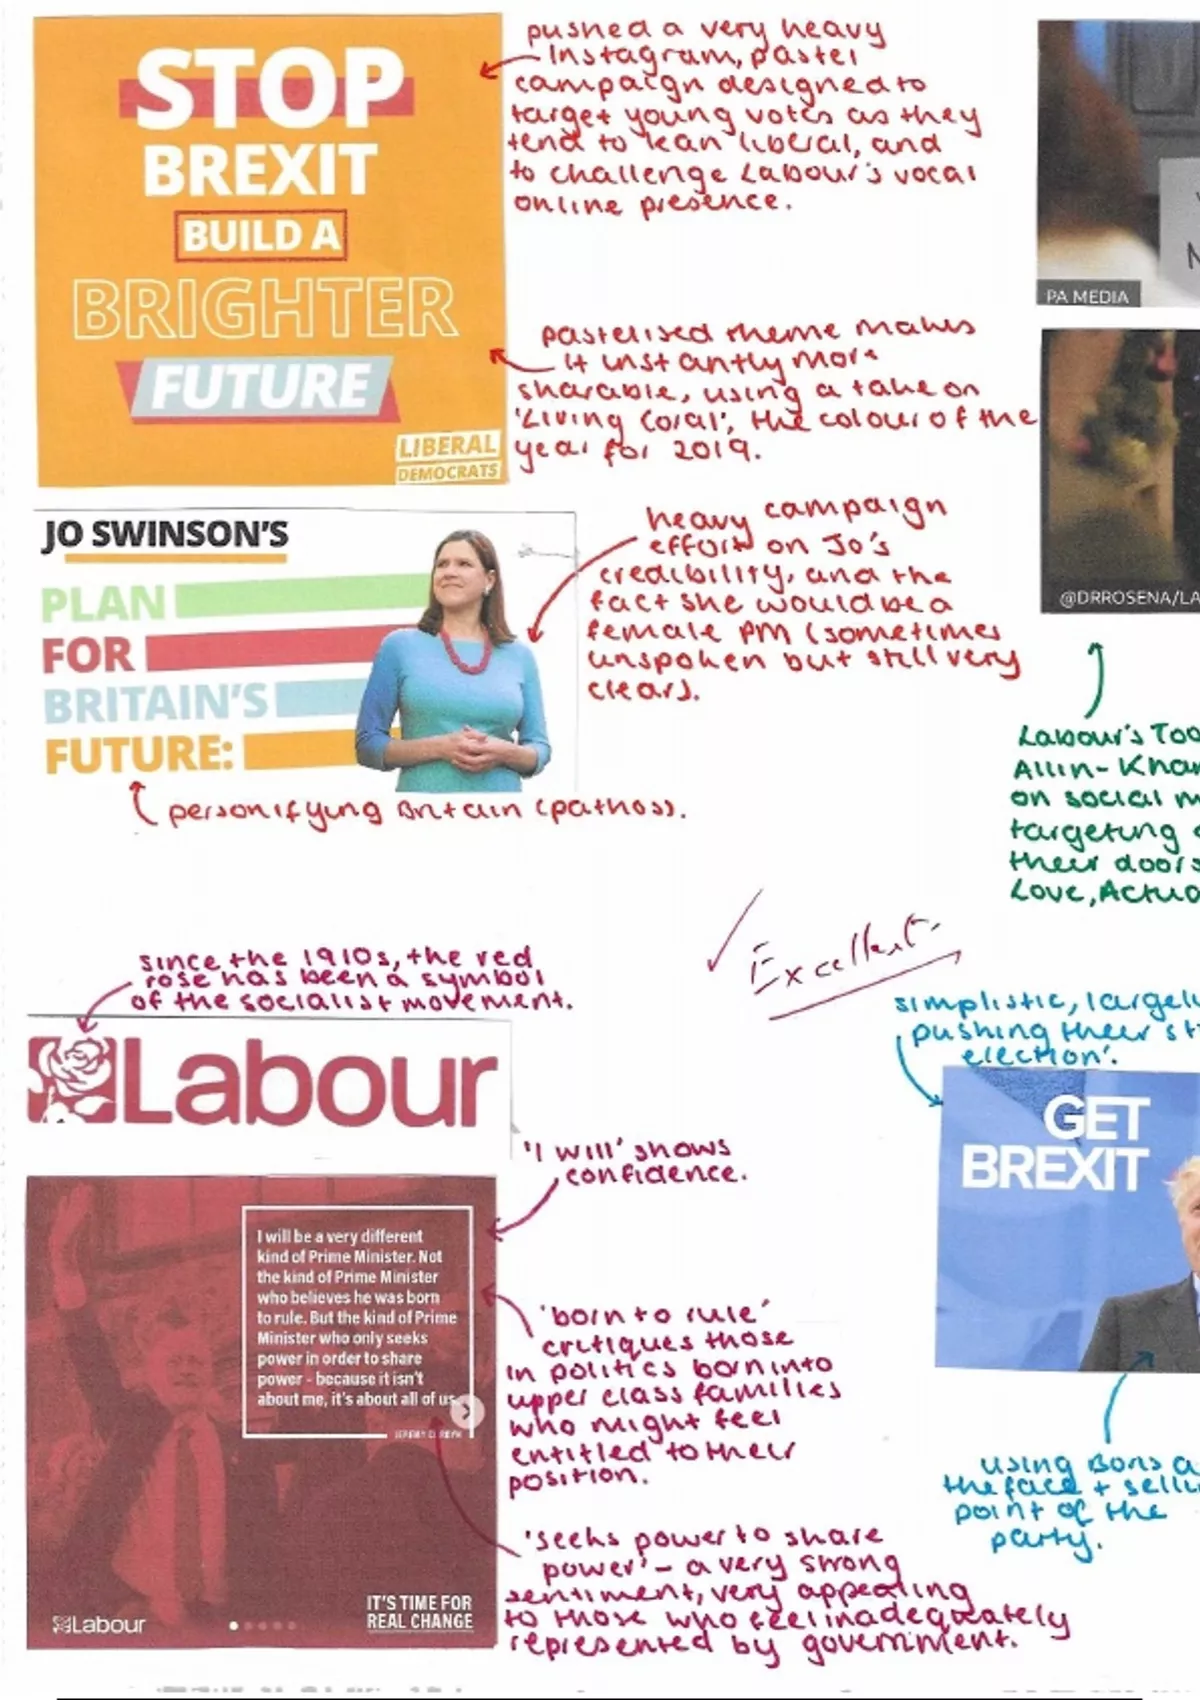 STOP
BREXIT
BUILD A
BRIGHTER
FUTURE
LIBERAL
DEMOCRATS
pushed a very heavy
Instagram, pastel
campaign designed to
target young votes as they
tend to lean liberal, and
to challenge Labour's vocal
online presence.
pastelised theme makes
it instantly more
sharable, using a take on
'Living Coral', the colour of the
year for 2019.
JO SWINSON'S
PLAN
FOR
BRITAIN'S
FUTURE:
heavy campaign
effort on Jo's
credibility, and the
fact she would be a
female PM (sometimes
unspoken but still very
clear).
personifying Britain (pathos).
PA MEDIA
@DRROSENA/LA
Labour's Too
Allin-Khan
on social m
targeting
their doors
Love, Actua
Excellent.
since the 1910s, the red
rose has been a symbol
of the socialist movement.
Labour
'I will' shows
confidence.
I will be a very different
kind of Prime Minister. Not
the kind of Prime Minister
who believes he was born
to rule. But the kind of Prime
Minister who only seeks
power in order to share
power - because it isn't
about me, it's about all of us
JEREMY CORBYN
'born to rule'
critiques those
in politics born into
upper class families
who might feel
entitled to their
position.
'seeks power to share
power' - a very strong
sentiment, very appealing
to those who feel inadequately
represented by government.
Labour
IT'S TIME FOR
REAL CHANGE
simplistic, largel
pushing their 'st
election'.
GET
BREXIT
using Boris a
the face + selli
point of the
party.